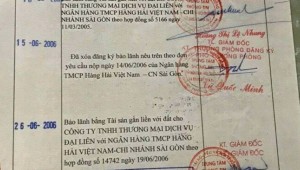 TNHH THƯƠNG MẠI DỊCH VỤ ĐẠI LIÊN với
NGÂN HÀNG TMCP HÀNG HẢI VIỆT NAM - CHI
NHÁNH SÀI GÒN theo hợp đồng số 5166 ngày
11/03/2005.
15-06-2006
Đã xóa đăng ký bảo lãnh nêu trên theo đơn
yêu cầu nộp ngày 14/06/2006 của Ngân hàng
TMCP Hàng Hải Việt Nam – CN Sài Gòn.
TL. GIÁM ĐỐC
PHÒNG ĐĂNG KÝ
Quốc Minh
26-06-2006
Bảo lãnh bằng Tài sản gắn liền với đất cho
CÔNG TY TNHH THƯƠNG MẠI DỊCH VỤ
ĐẠI LIÊN với NGÂN HÀNG TMCP HÀNG
HẢI VIỆT NAM-CHI NHÁNH SÀI GÒN theo
hợp đồng số 14742 ngày 19/06/2006
KT. GIÁM ĐỐC
GIÁM ĐỐC